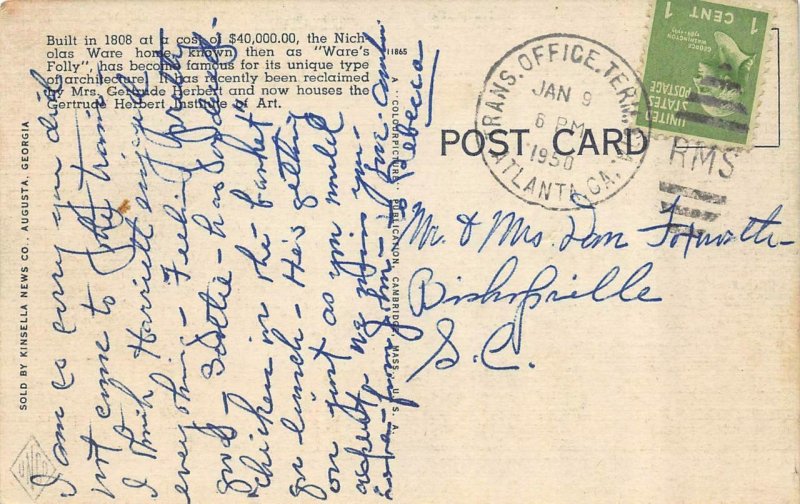 Built in 1808 at a cost of $40,000.00, the Nich-
olas Ware home, known then as "Ware's
Folly", has become famous for its unique type
of architecture. It has recently been reclaimed
by Mrs. Gertrude Herbert and now houses the
Gertrude Herbert Institute of Art.
11865
POST CARD
TRANS. OFFICE. TERM.
JAN 9
6 PM
1950
ATLANTA, GA.
UNITED
STATES
POSTAGE
GEORGE
WASHINGTON
1 CENT 1
RMS
SOLD BY KINSELLA NEWS CO., AUGUSTA, GEORGIA
A "COLOURPICTURE" PUBLICATION, CAMBRIDGE, MASS., U. S. A.
I am so sorry you did
not come to the train
I think Harriett enjoyed
everything - Feeling pretty
good - Scottie - has
"Chicken in the basket"
for lunch - He's getting
on just as you would
expect. We enjoy you
Love - from John - &
Rebecca
Mr. & Mrs. Dan
Bishopville
S.C.